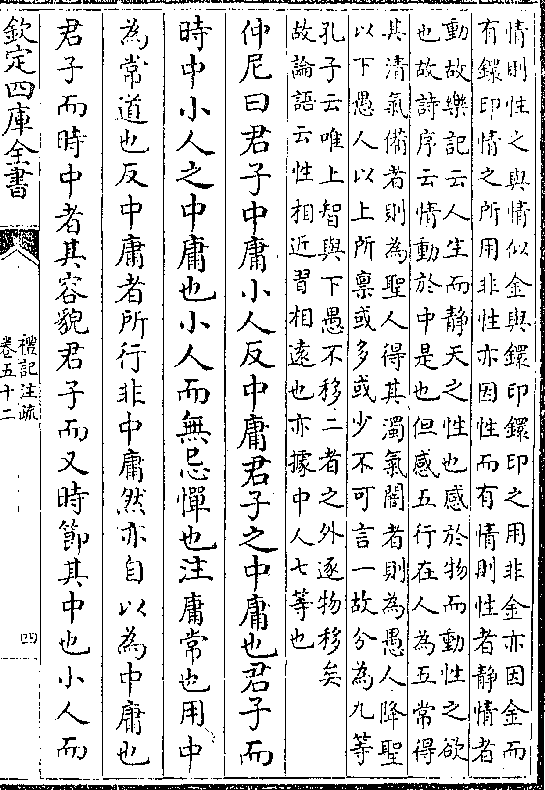 情則性之與情似金與鐶印鐶印之用非金亦因金而
有鐶印情之所用非性亦因性而有情則性者静情者
動故樂記云人生而静天之性也感於物而動性之欲
也故詩序云情動於中是也但感五行在人為五常得
其清氣備者則為聖人得其濁氣闇者則為愚人降聖
以下愚人以上所禀或多或少不可言一故分為九等
孔子云唯上智與下愚不移二者之外逐物移矣
故論語云性相近習相遠也亦據中人七等也
仲尼曰君子中庸小人反中庸君子之中庸也君子而
時中小人之中庸也小人而無忌憚也注庸常也用中
為常道也反中庸者所行非中庸然亦自以為中庸也
君子而時中者其容貌君子而又時節其中也小人而
欽定四庫全書
禮記注疏
卷五十二
四